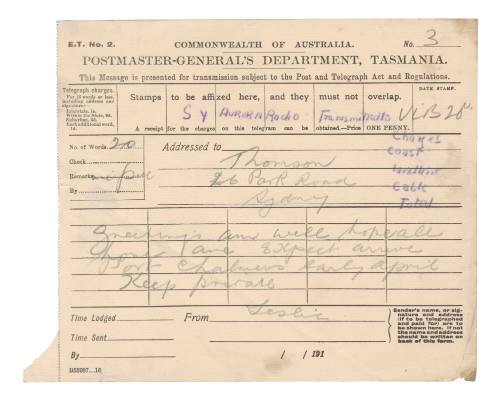 E.T. No. 2.
COMMONWEALTH OF AUSTRALIA.
No. 3
POSTMASTER-GENERAL'S DEPARTMENT, TASMANIA.
This Message is presented for transmission subject to the Post and Telegraph Act and Regulations.
Telegraph charges.
For 16 words or less, including address and signature:—
Stamps to be affixed here, and they must not overlap.
DATE STAMP.
S Y Aurora Radio Transmitted
A receipt for the charges on this telegram can be obtained.—Price ONE PENNY.
No. of Words 20
Check
Remarks
By
Addressed to
Thomson
26 Park Road
Sydney
Charges
Coast
Landline
Cable
Total
Greetings am well hope all
yours are Expect arrive
Port Chalmers early April
Keep private
Leslie
Time Lodged
From
Time Sent
By
/ / 191
Sender's name, or signature and address (if to be telegraphed and paid for) are to be shown here. If not the name and address should be written on back of this form.